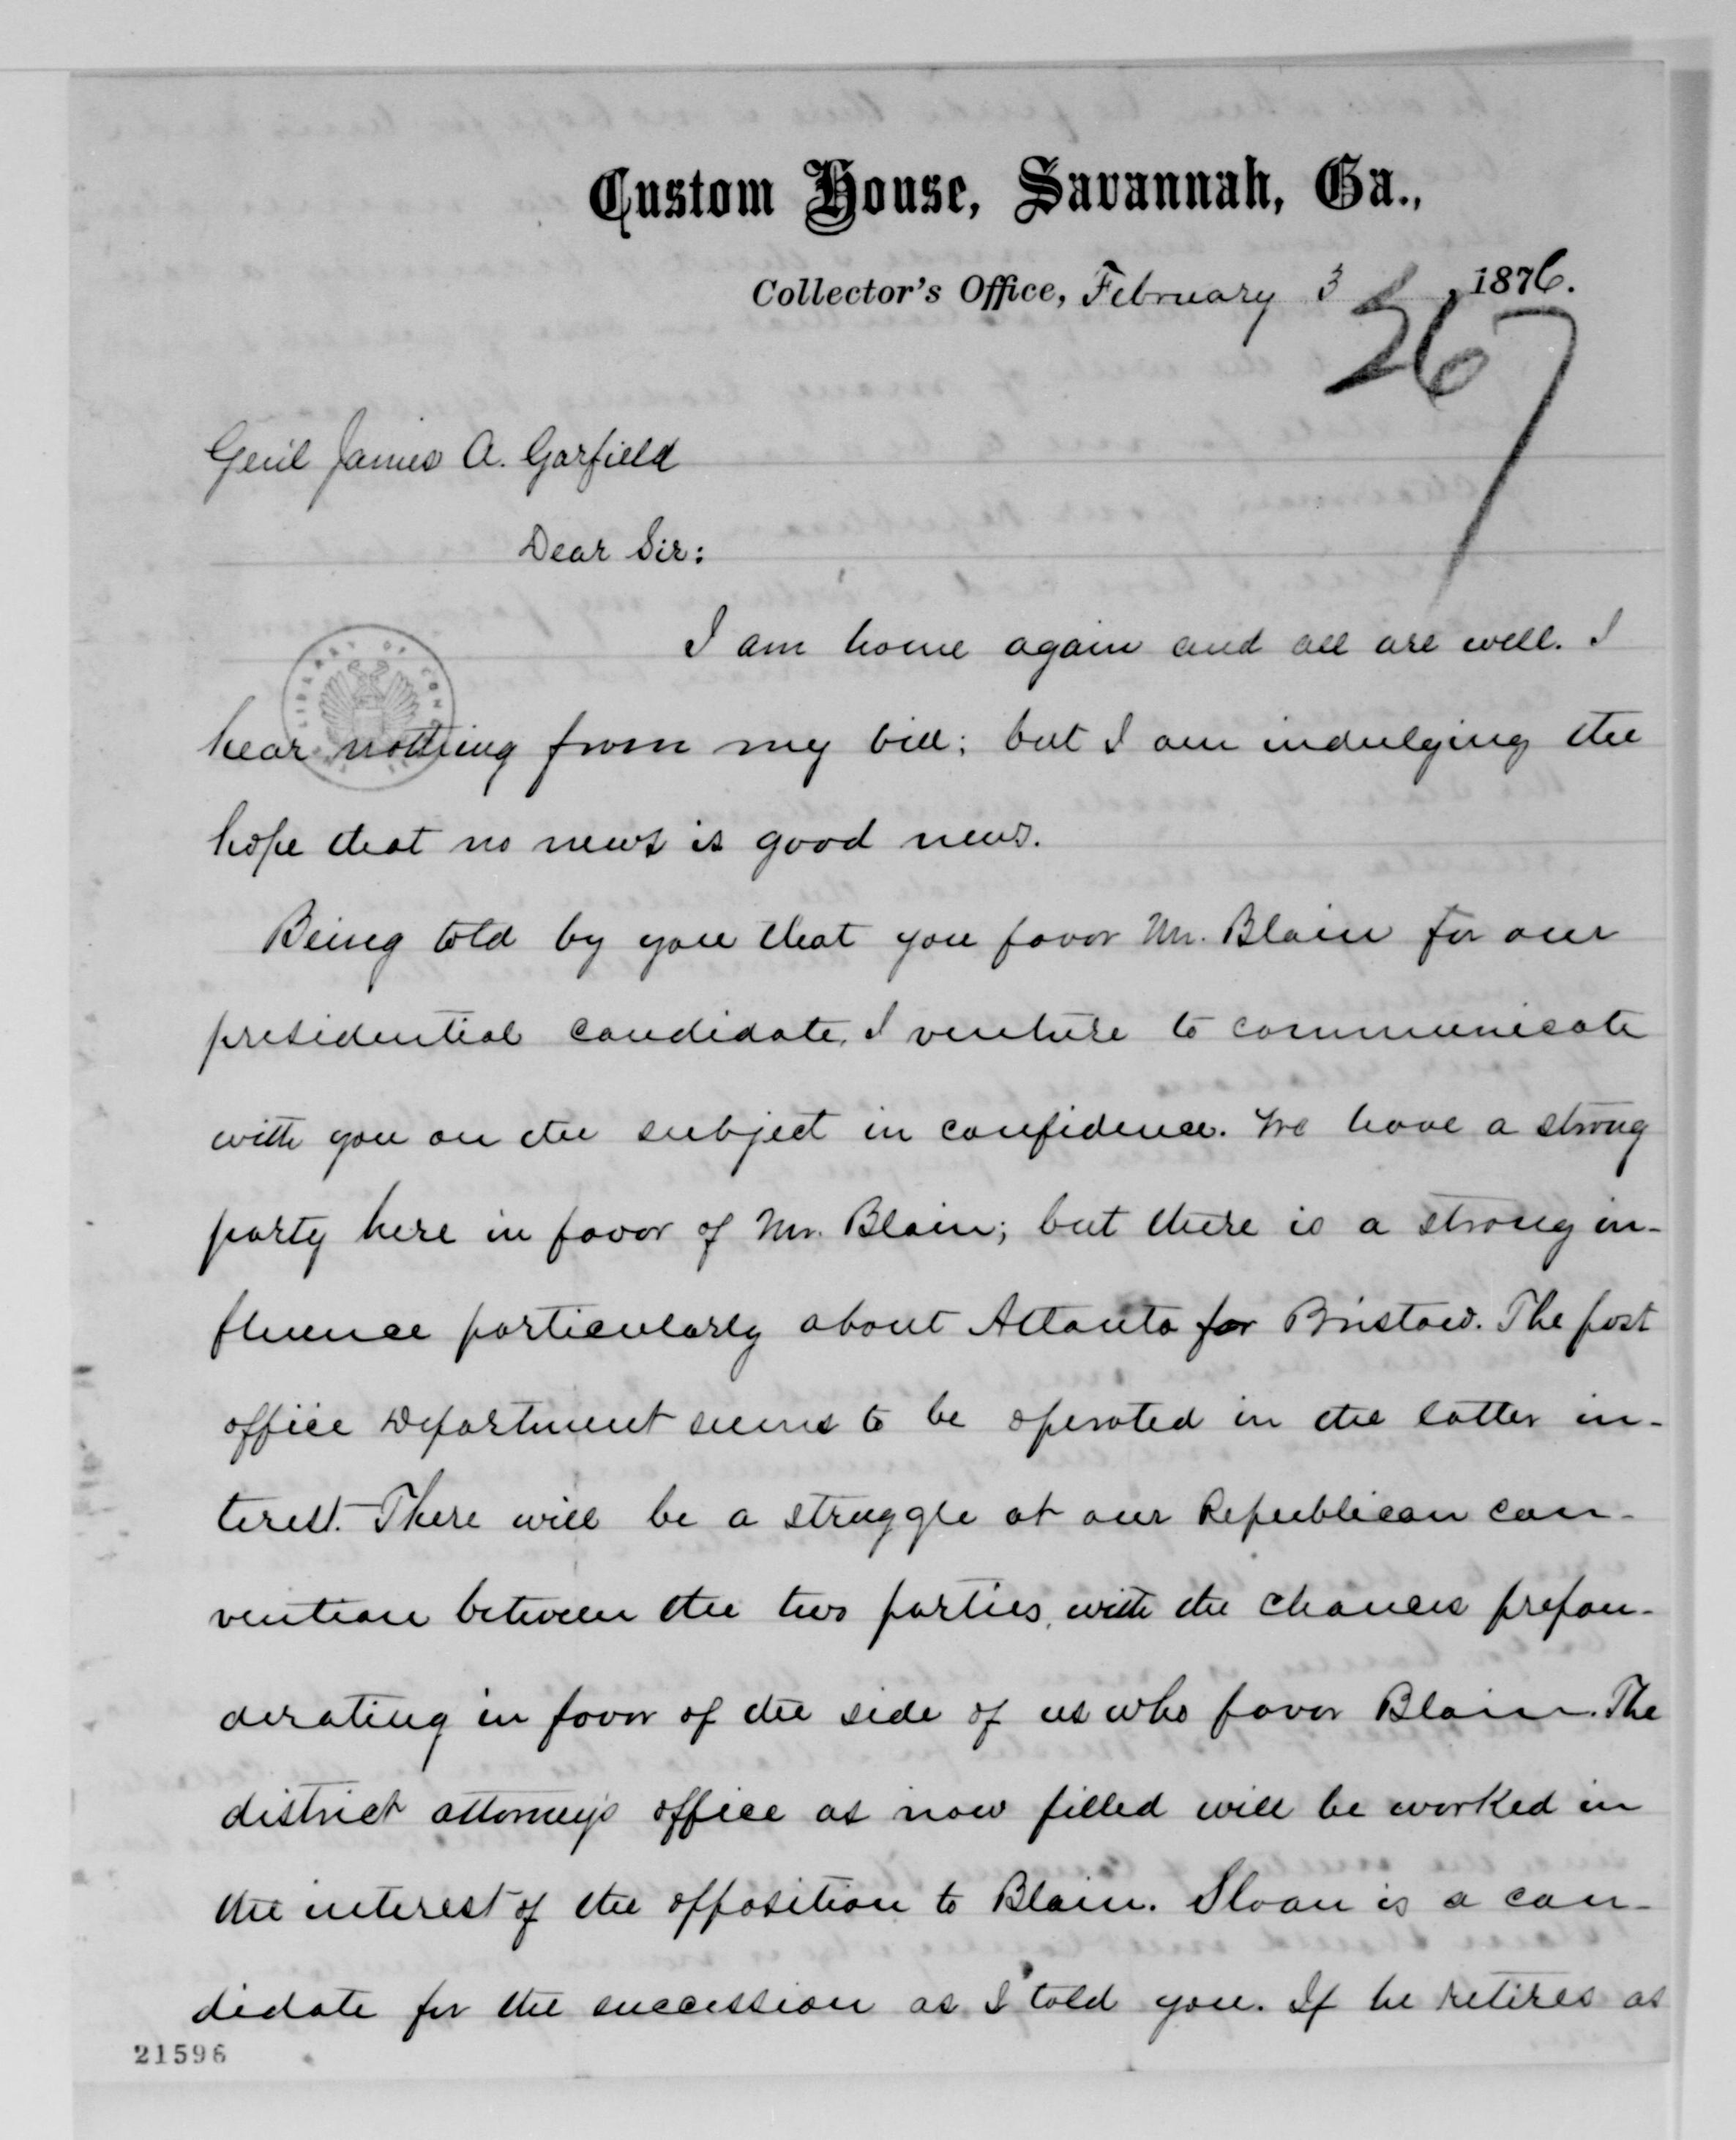 Custom House, Savannah, Ga.,
Collector's Office, February 3 1876.
267
Genl James A. Garfield
Dear Sir:
I am home again and all are well. I
hear nothing from my bill; but I am indulging the
hope that no news is good news.
Being told by you that you favor Mr. Blain for our
presidential candidate, I venture to communicate
with you on the subject in confidence. We have a strong
party here in favor of Mr. Blain; but there is a strong in-
fluence particularly about Atlanta for Bristow. The post
office Department seems to be operated in the latter in-
terest. There will be a struggle at our Republican con-
vention between the two parties, with the chances prepon-
derating in favor of the side of us who favor Blain. The
district attorneys office as now filled will be worked in
the interest of the opposition to Blain. Sloan is a can-
didate for the succession as I told you. If he retires as
LIBRARY OF CON
21596